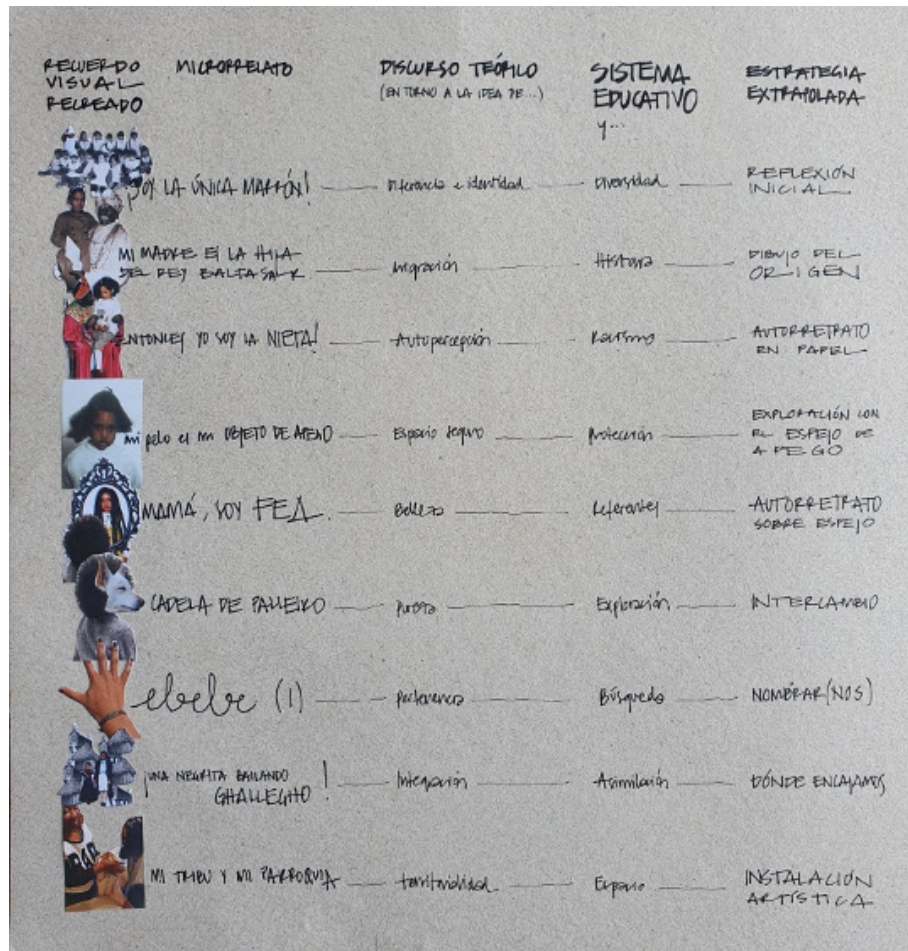 RECUERDO VISUAL RECREADO
MICRORRELATO
DISCURSO TEÓRICO
(EN TORNO A LA IDEA DE...)
SISTEMA EDUCATIVO
y...
ESTRATEGIA EXTRAPOLADA
¡SOY LA ÚNICA MARRÓN! Diferencia e identidad Diversidad REFLEXIÓN INICIAL
MI MADRE ES LA HIJA
DEL REY BALTASAR migración Historia DIBUJO DEL ORIGEN
ENTONCES YO SOY LA NIETA! Autopercepción Racismo AUTORRETRATO EN PAPEL
mi pelo es mi OBJETO DE APEGO Espacio seguro protección EXPLORACIÓN CON EL ESPEJO DE APEGO
MAMÁ, SOY FEA. Belleza Referentes AUTORRETRATO SOBRE ESPEJO
CADELA DE PALLEIRO pureza Exploración INTERCAMBIO
ebebe (1) pertenencia Búsqueda NOMBRAR(NOS)
¡UNA NEGRITA BAILANDO
GHALLEGHO! Integración Asimilación DÓNDE ENCAJAMOS
MI TRIBU Y MI PARROQUIA territorialidad Espacio INSTALACIÓN ARTÍSTICA